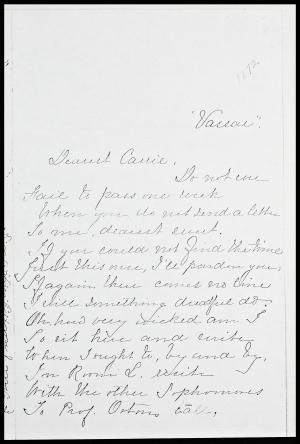 1872.
"Vassar".
Dearest Carrie,
Do not ever
Fail to pass one week
When you do not send a letter
To me, dearest
If you could not find the time
Just this once, I'll pardon you,
If again there comes no line
I will something dreadful do.
Oh, how very wicked am I
To sit here and write
When I ought to, by and by,
In Room L. write
With the other Sophomores
To Prof. Orton's call,